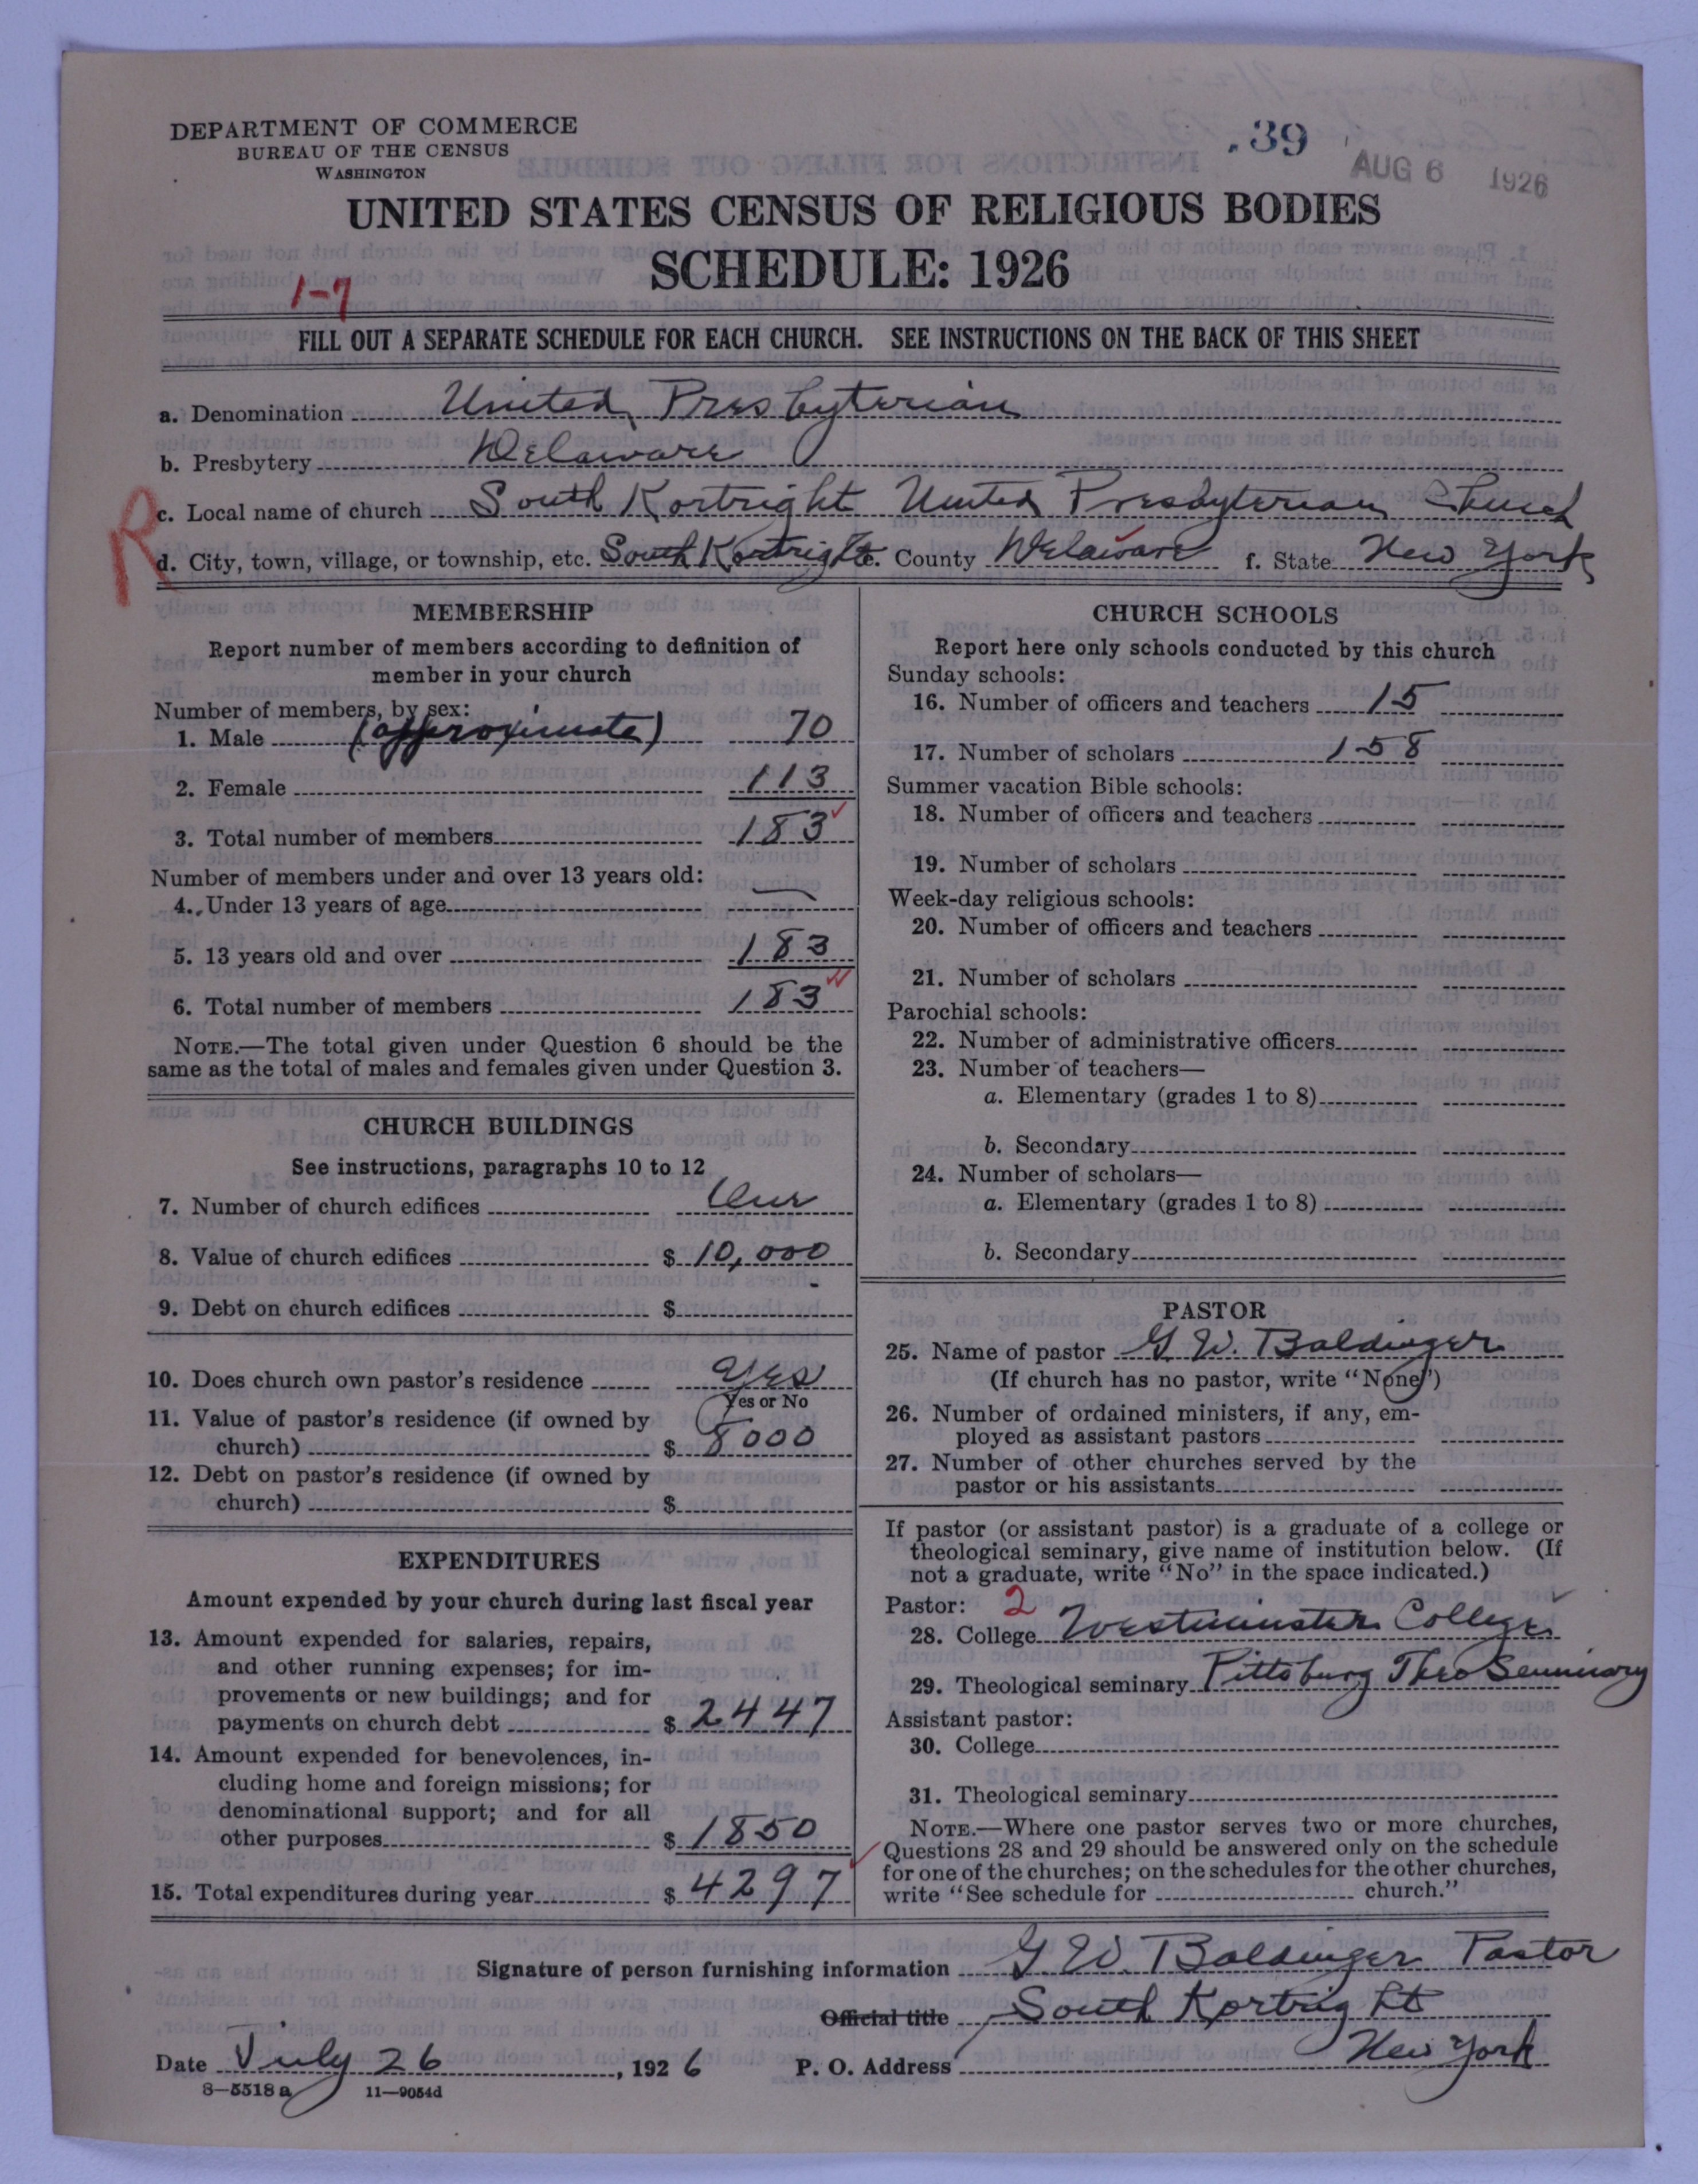 DEPARTMENT OF COMMERCE
BUREAU OF THE CENSUS
WASHINGTON
.39
AUG 6 1926
UNITED STATES CENSUS OF RELIGIOUS BODIES
SCHEDULE: 1926
1-7
FILL OUT A SEPARATE SCHEDULE FOR EACH CHURCH. SEE INSTRUCTIONS ON THE BACK OF THIS SHEET
a. Denomination United Presbyterian
b. Presbytery Delaware
R
c. Local name of church South Kortright United Presbyterian Church
d. City, town, village, or township, etc. South Kortright e. County Delaware f. State New York
MEMBERSHIP
Report number of members according to definition of
member in your church
Number of members, by sex:
1. Male (approximate) 70
2. Female 113
3. Total number of members 183
Number of members under and over 13 years old:
4. Under 13 years of age —
5. 13 years old and over 183
6. Total number of members 183
NOTE.—The total given under Question 6 should be the
same as the total of males and females given under Question 3.
CHURCH BUILDINGS
See instructions, paragraphs 10 to 12
7. Number of church edifices One
8. Value of church edifices $ 10,000
9. Debt on church edifices $
10. Does church own pastor's residence Yes
Yes or No
11. Value of pastor's residence (if owned by
church) $ 8000
12. Debt on pastor's residence (if owned by
church) $
EXPENDITURES
Amount expended by your church during last fiscal year
13. Amount expended for salaries, repairs,
and other running expenses; for im-
provements or new buildings; and for
payments on church debt $ 2447
14. Amount expended for benevolences, in-
cluding home and foreign missions; for
denominational support; and for all
other purposes $ 1850
15. Total expenditures during year $ 4297
CHURCH SCHOOLS
Report here only schools conducted by this church
Sunday schools:
16. Number of officers and teachers 15
17. Number of scholars 158
Summer vacation Bible schools:
18. Number of officers and teachers
19. Number of scholars
Week-day religious schools:
20. Number of officers and teachers
21. Number of scholars
Parochial schools:
22. Number of administrative officers
23. Number of teachers—
a. Elementary (grades 1 to 8)
b. Secondary
24. Number of scholars—
a. Elementary (grades 1 to 8)
b. Secondary
PASTOR
25. Name of pastor G. W. Baldinger
(If church has no pastor, write "None")
26. Number of ordained ministers, if any, em-
ployed as assistant pastors
27. Number of other churches served by the
pastor or his assistants
If pastor (or assistant pastor) is a graduate of a college or
theological seminary, give name of institution below. (If
not a graduate, write "No" in the space indicated.)
Pastor: 2
28. College Westminster College
29. Theological seminary Pittsburg Theo Seminary
Assistant pastor:
30. College
31. Theological seminary
NOTE.—Where one pastor serves two or more churches,
Questions 28 and 29 should be answered only on the schedule
for one of the churches; on the schedules for the other churches,
write "See schedule for church."
Signature of person furnishing information G W. Baldinger Pastor
Official title South Kortright
Date July 26, 1926 P. O. Address New York
8—5518 a 11—9054d